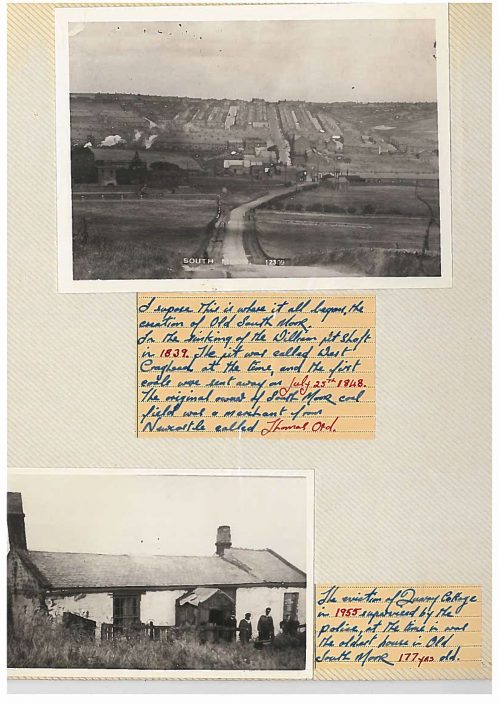 SOUTH MOOR 12309
I supose this is where it all began, the
creation of Old South Moor.
In the sinking of the William pit shaft
in 1839. The pit was called West
Craghead at the time, and the first
coals were sent away on July 25th 1848.
The original owner of South Moor coal
field was a merchant from
Newcastle called Thomas Ord.
The eviction of Quarry Cottage
in 1955 supervised by the
police, at the time it was
the oldest house in Old
South Moor 177 yrs old.